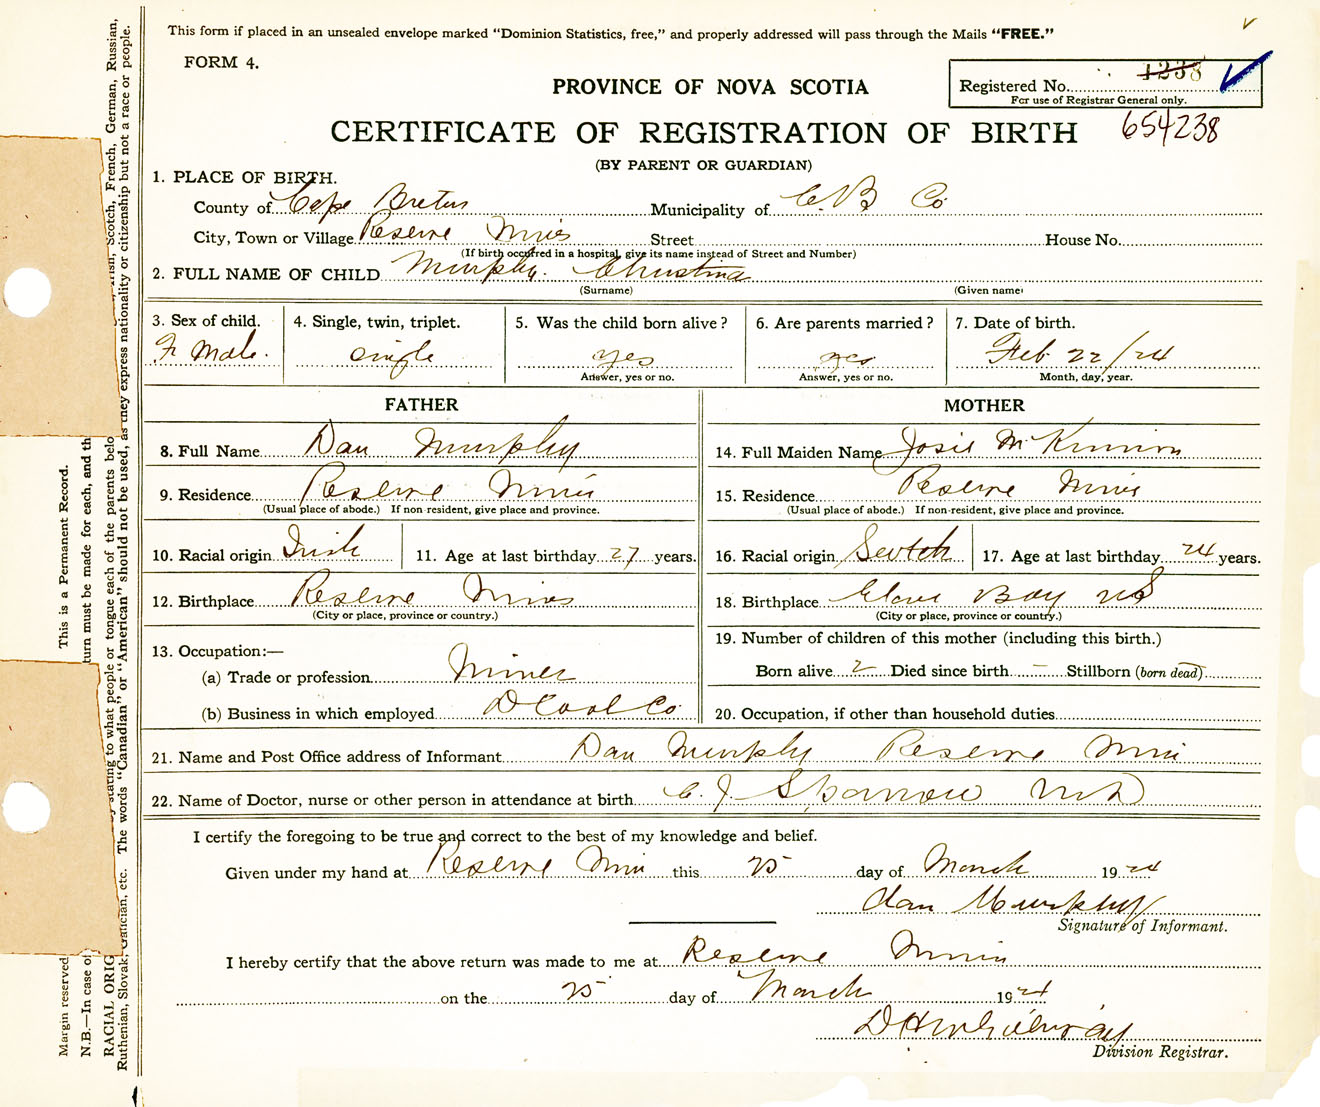 This form if placed in an unsealed envelope marked "Dominion Statistics, free," and properly addressed will pass through the Mails "FREE."
FORM 4.
PROVINCE OF NOVA SCOTIA
Registered No. 1238
For use of Registrar General only.
CERTIFICATE OF REGISTRATION OF BIRTH 654238
(BY PARENT OR GUARDIAN)
1. PLACE OF BIRTH.
County of Cape Breton Municipality of C. B Co
City, Town or Village Reserve Mines Street House No.
(If birth occurred in a hospital, give its name instead of Street and Number)
2. FULL NAME OF CHILD Murphy. Christina
(Surname) (Given name)
3. Sex of child. 4. Single, twin, triplet. 5. Was the child born alive? 6. Are parents married? 7. Date of birth.
F Male. single yes yes Feb 22/24
Answer, yes or no. Answer, yes or no. Month, day, year.
FATHER MOTHER
8. Full Name Dan Murphy 14. Full Maiden Name Josie McKinnon
9. Residence Reserve Mines 15. Residence Reserve Mines
(Usual place of abode.) If non-resident, give place and province. (Usual place of abode.) If non-resident, give place and province.
10. Racial origin Irish 11. Age at last birthday 27 years. 16. Racial origin Scotch 17. Age at last birthday 24 years.
12. Birthplace Reserve Mines 18. Birthplace Glace Bay NS
(City or place, province or country.) (City or place, province or country.)
19. Number of children of this mother (including this birth.)
13. Occupation:—
(a) Trade or profession Miner Born alive 2 Died since birth – Stillborn (born dead)
(b) Business in which employed D Coal Co 20. Occupation, if other than household duties
21. Name and Post Office address of Informant Dan Murphy Reserve Mines
22. Name of Doctor, nurse or other person in attendance at birth C. J. Sparrow M D
I certify the foregoing to be true and correct to the best of my knowledge and belief.
Given under my hand at Reserve Mines this 25 day of March 1924
Dan Murphy
Signature of Informant.
I hereby certify that the above return was made to me at Reserve Mines
on the 25 day of March 1924
Division Registrar.
Margin reserved This is a Permanent Record.
N.B.—In case of turn must be made for each, and th
RACIAL ORIG stating to what people or tongue each of the parents belo Irish, Scotch, French, German, Russian,
Ruthenian, Slovak, Galician, etc. The words "Canadian" or "American" should not be used, as they express nationality or citizenship but not a race or people.